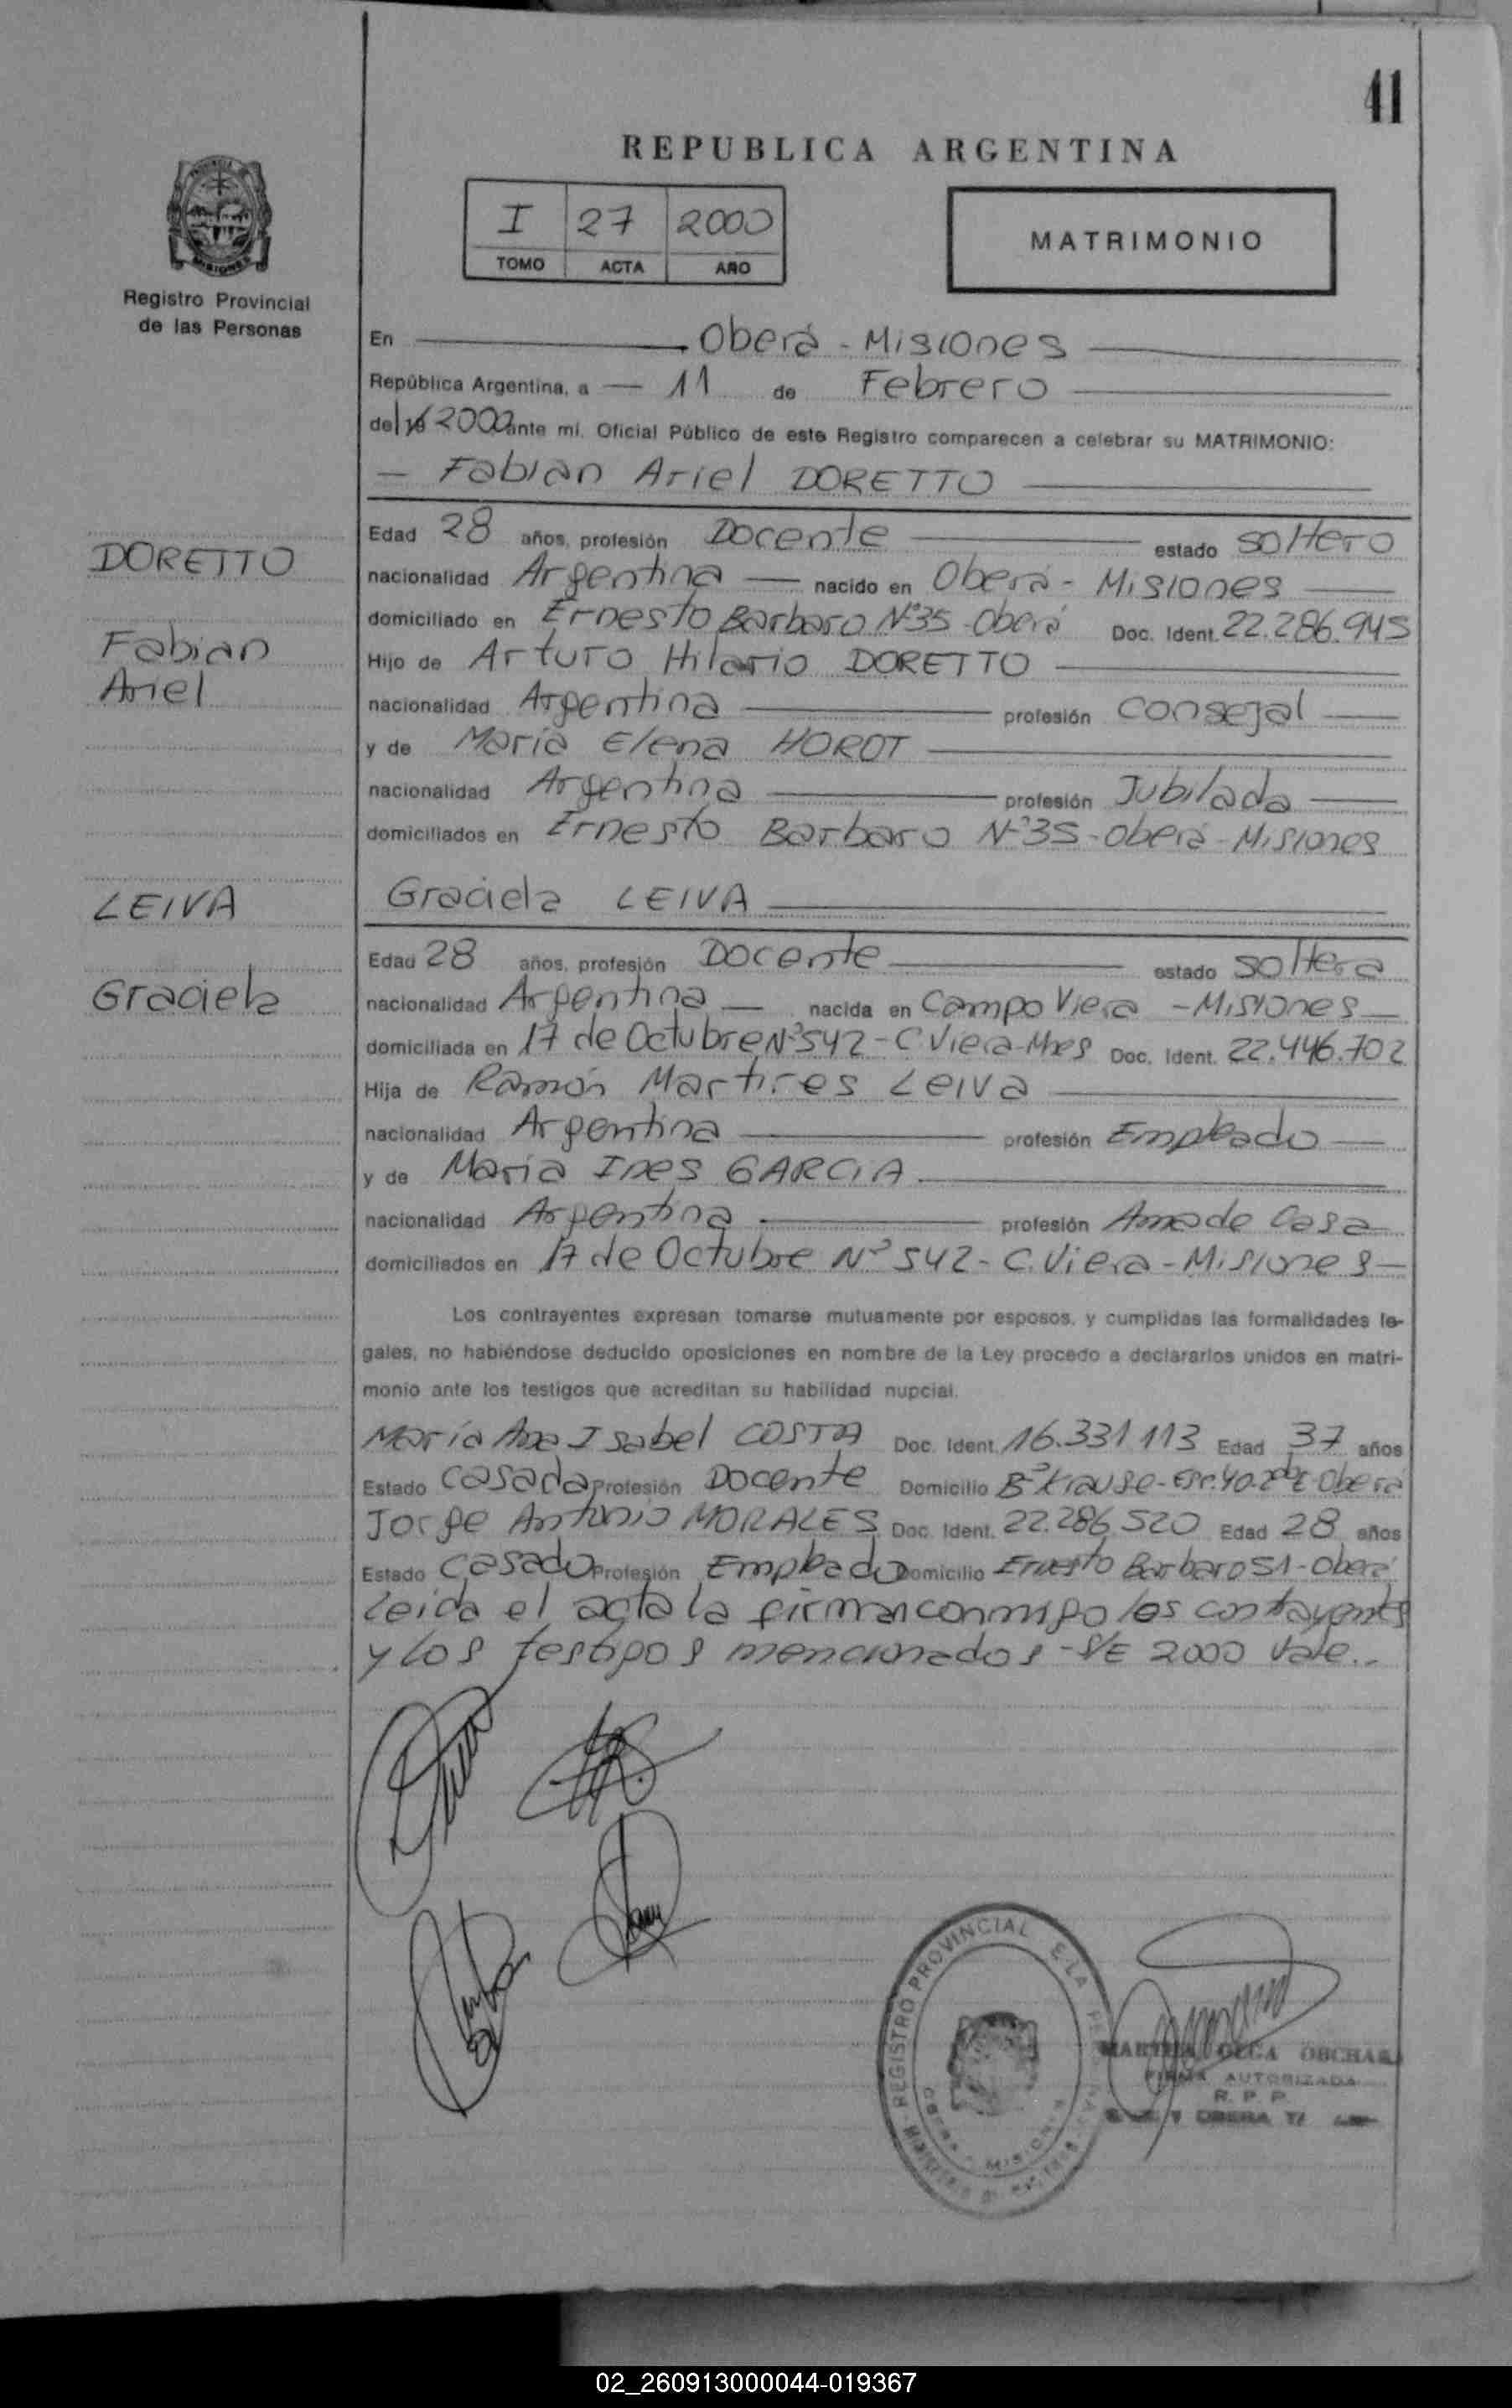 41
REPUBLICA ARGENTINA
I 27 2000
TOMO ACTA AÑO
MATRIMONIO
MISIONES
Registro Provincial
de las Personas
En Oberá - Misiones
República Argentina, a 11 de Febrero
del 2000 ante mi, Oficial Público de este Registro comparecen a celebrar su MATRIMONIO:
Fabian Ariel DORETTO
DORETTO
Fabian
Ariel
Edad 28 años, profesión Docente estado soltero
nacionalidad Argentina nacido en Oberá - Misiones
domiciliado en Ernesto Barbaro Nº35 - Oberá Doc. Ident. 22.286.945
Hijo de Arturo Hilario DORETTO
nacionalidad Argentina profesión Consejal
y de María Elena HOROT
nacionalidad Argentina profesión Jubilada
domiciliados en Ernesto Barbaro Nº35 - Oberá - Misiones
LEIVA
Graciela
Graciela LEIVA
Edad 28 años, profesión Docente estado soltera
nacionalidad Argentina nacida en Campo Viera - Misiones
domiciliada en 17 de Octubre Nº542 - C. Viera - Mnes Doc. Ident. 22.446.702
Hija de Ramón Martires Leiva
nacionalidad Argentina profesión Empleado
y de Maria Ines GARCIA
nacionalidad Argentina profesión Ama de Casa
domiciliados en 17 de Octubre Nº 542 - C. Viera - Misiones
Los contrayentes expresan tomarse mutuamente por esposos, y cumplidas las formalidades le-
gales, no habiéndose deducido oposiciones en nombre de la Ley procedo a declararlos unidos en matri-
monio ante los testigos que acreditan su habilidad nupcial.
María Ana Isabel COSTA Doc. Ident. 16.331.113 Edad 37 años
Estado Casada Profesión Docente Domicilio Bº Krause - Oberá
Jorge Antonio MORALES Doc. Ident. 22.286.520 Edad 28 años
Estado Casado Profesión Empleado Domicilio Ernesto Barbaro 51 - Oberá
Leida el acta la firman conmigo los contrayentes
y los testigos mencionados - S/E 2000 Vale..
REGISTRO PROVINCIAL
OBERA - MISIONES
OLGA
FIRMA AUTORIZADA
R. P. P.
OBERA
02_260913000044-019367